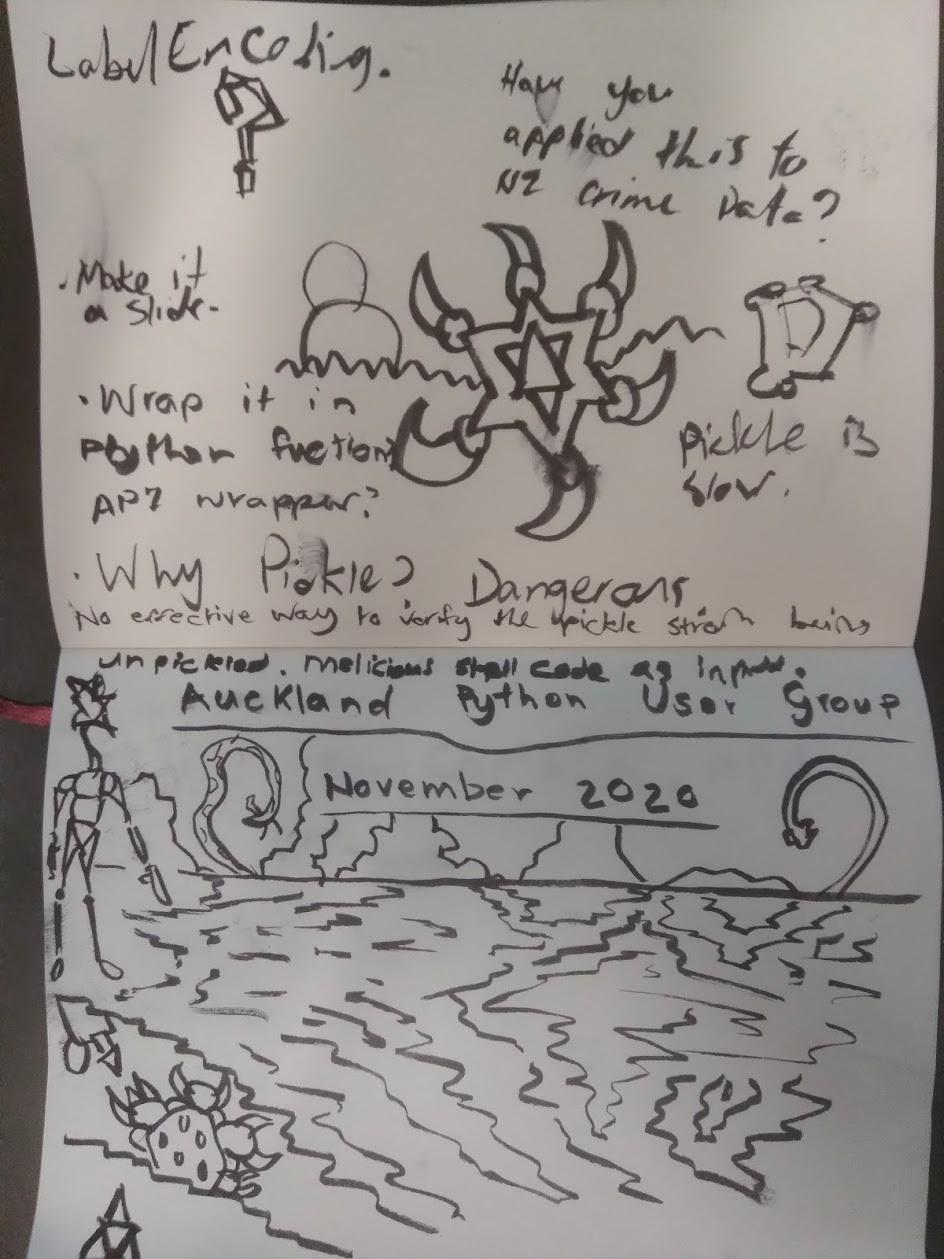 Label Encoding.
Have you
applied this to
NZ crime Data?
. Make it
a slide.
. Wrap it in
python fuction
API wrapper?
pickle is
slow.
. Why Pickle? Dangerous
No effective way to verify the pickle stream being
unpickled. melicious shell code as input.
Auckland Python User Group
November 2020